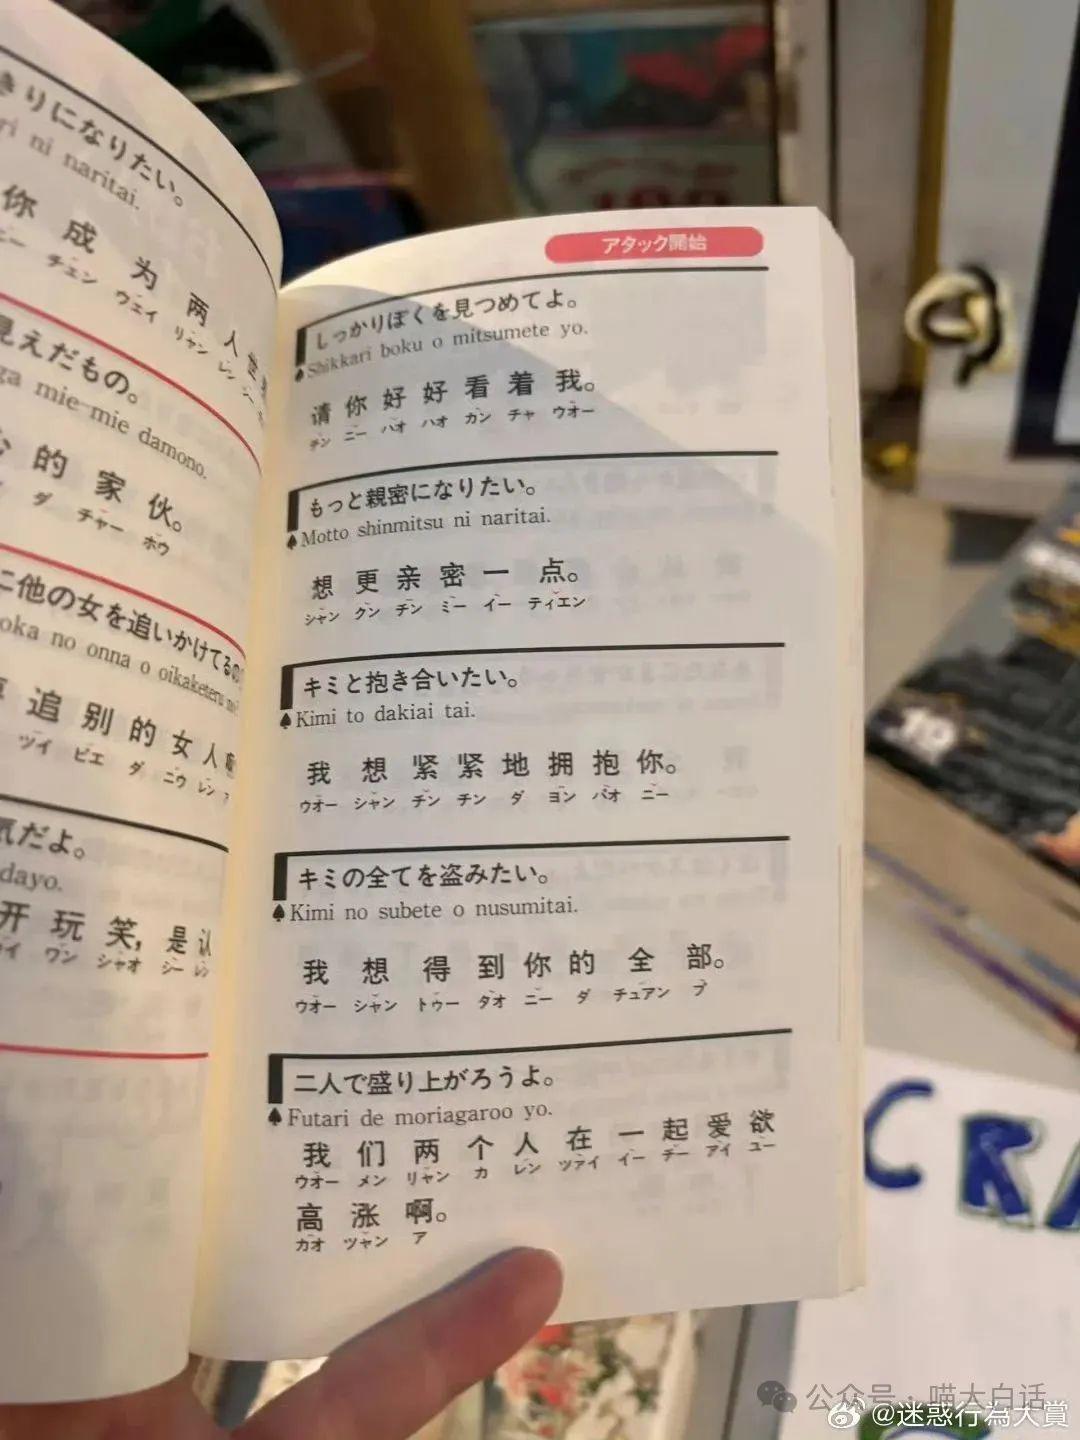 きりになりたい。
ri ni naritai.
你成为两人世
ニー チェン ウェイ リャン レン シー
見えだもの。
ga mie-mie damono.
的家伙。
ダ チャー ホウ
に他の女を追いかけてるの
oka no onna o oikaketeru no
追别的女人啊
ツイ ビエ ダ ニウ レン ア
気だよ。
dayo.
开玩笑，是认
カイ ワン シャオ シー レン
アタック開始
しっかりぼくを見つめてよ。
Shikkari boku o mitsumete yo.
请你好好看着我。
チン ニー ハオ ハオ カン チャ ウオー
もっと親密になりたい。
Motto shinmitsu ni naritai.
想更亲密一点。
シャン クン チン ミー イー ティエン
キミと抱き合いたい。
Kimi to dakiai tai.
我想紧紧地拥抱你。
ウオー シャン チン チン ダ ヨン パオ ニー
キミの全てを盗みたい。
Kimi no subete o nusumitai.
我想得到你的全部。
ウオー シャン トゥー タオ ニー ダ チュアン プ
二人で盛り上がろうよ。
Futari de moriagaroo yo.
我们两个人在一起爱欲
ウオー メン リャン カ レン ツァイ イー チー アイ ユー
高涨啊。
カオ ツャン ア
CRA
公众号·喵大白话
@迷惑行為大賞